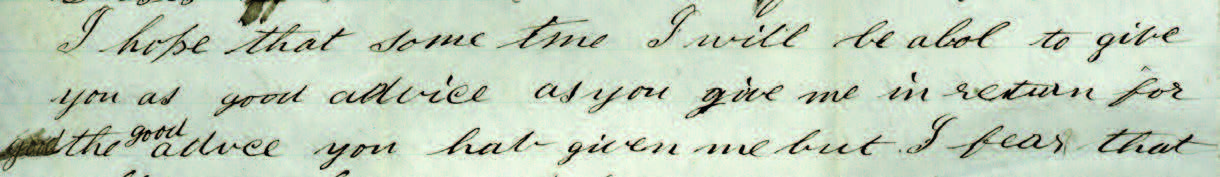 I hope that some tme I will be abol to give
you as good advice as you give me in return for
good the good advce you hav given me but I fear that